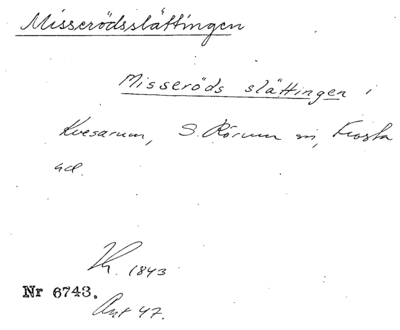 Misserödsslättingen
Misseröds slättingen i
Kvesarum, S. Rörum sn, Frosta
hd.
1843
Nr 6743.
Ant 47.